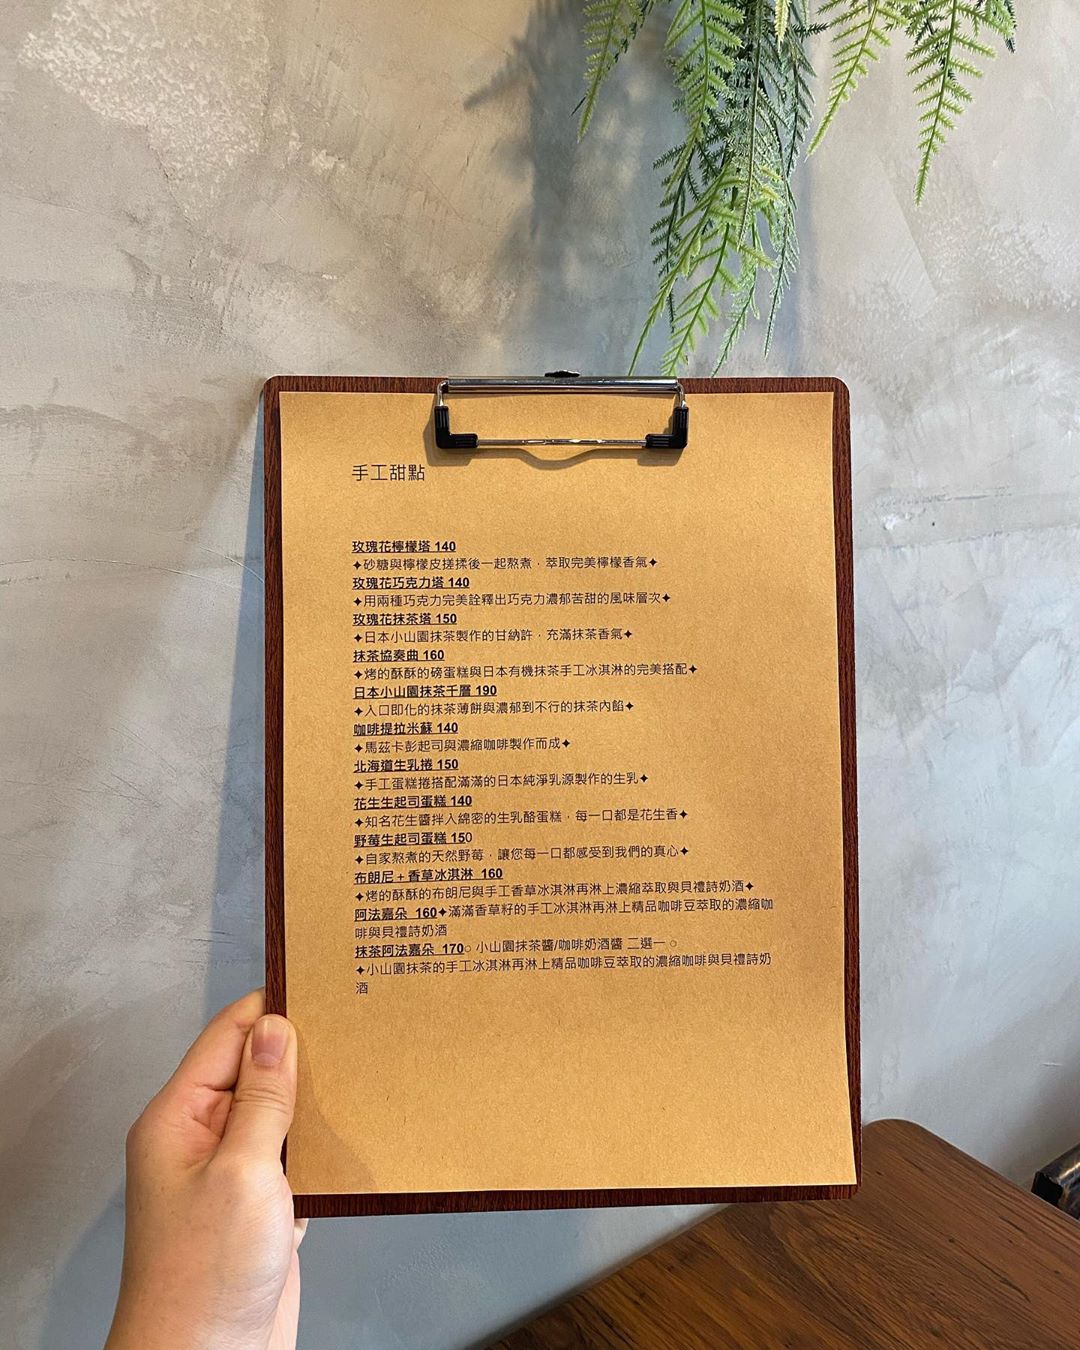 手工甜點
玫瑰花檸檬塔 140
✦砂糖與檸檬皮搓揉後一起熬煮，萃取完美檸檬香氣✦
玫瑰花巧克力塔 140
✦用兩種巧克力完美詮釋出巧克力濃郁苦甜的風味層次✦
玫瑰花抹茶塔 150
✦日本小山園抹茶製作的甘納許，充滿抹茶香氣✦
抹茶協奏曲 160
✦烤的酥酥的磅蛋糕與日本有機抹茶手工冰淇淋的完美搭配✦
日本小山園抹茶千層 190
✦入口即化的抹茶薄餅與濃郁到不行的抹茶內餡✦
咖啡提拉米蘇 140
✦馬茲卡彭起司與濃縮咖啡製作而成✦
北海道生乳捲 150
✦手工蛋糕捲搭配滿滿的日本純淨乳源製作的生乳✦
花生生起司蛋糕 140
✦知名花生醬拌入綿密的生乳酪蛋糕，每一口都是花生香✦
野莓生起司蛋糕 150
✦自家熬煮的天然野莓，讓您每一口都感受到我們的真心✦
布朗尼+香草冰淇淋 160
✦烤的酥酥的布朗尼與手工香草冰淇淋再淋上濃縮萃取與貝禮詩奶酒✦
阿法嘉朵 160✦滿滿香草籽的手工冰淇淋再淋上精品咖啡豆萃取的濃縮咖
啡與貝禮詩奶酒
抹茶阿法嘉朵 170○ 小山園抹茶醬/咖啡奶酒醬 二選一 ○
✦小山園抹茶的手工冰淇淋再淋上精品咖啡豆萃取的濃縮咖啡與貝禮詩奶
酒